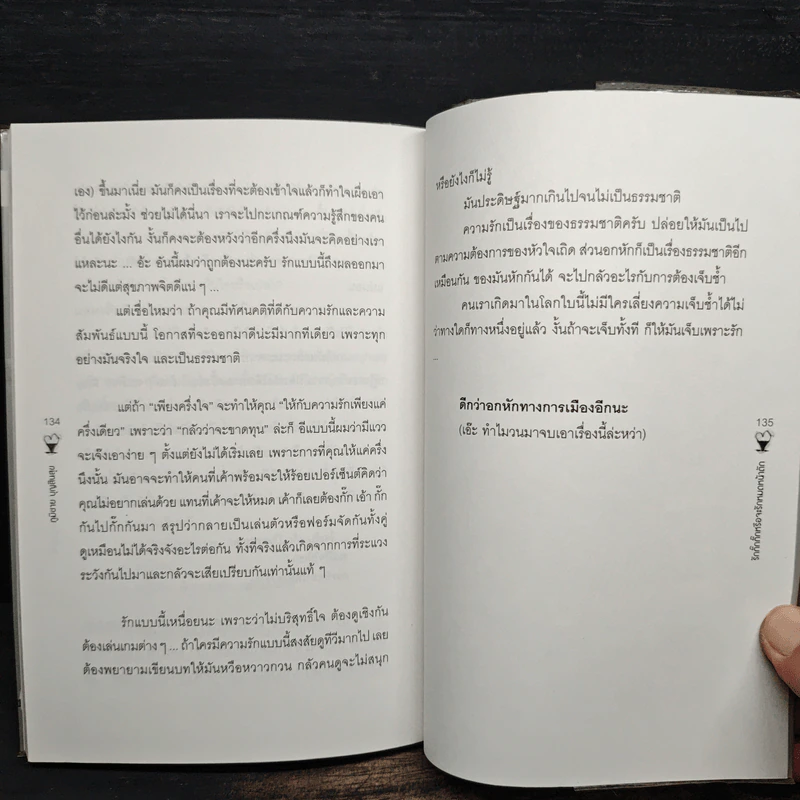 เอง) ขึ้นมาเนี่ย มันก็คงเป็นเรื่องที่จะต้องเข้าใจแล้วก็ทำใจเผื่อเอา
ไว้ก่อนล่ะมั้ง ช่วยไม่ได้นี่นา เราจะไปกะเกณฑ์ความรู้สึกของคน
อื่นได้ยังไงกัน งั้นก็คงจะต้องหวังว่าอีกครึ่งนึงมันจะคิดอย่างเรา
แหละนะ ... อ้ะ อันนี้ผมว่าถูกต้องนะครับ รักแบบนี้ถึงผลออกมา
จะไม่ดีแต่สุขภาพจิตดีแน่ ๆ ...
แต่เชื่อไหมว่า ถ้าคุณมีทัศนคติที่ดีกับความรักและความ
สัมพันธ์แบบนี้ โอกาสที่จะออกมาดีน่ะมีมากทีเดียว เพราะทุก
อย่างมันจริงใจ และเป็นธรรมชาติ
แต่ถ้า "เพียงครึ่งใจ" จะทำให้คุณ "ให้กับความรักเพียงแค่
ครึ่งเดียว" เพราะว่า "กลัวว่าจะขาดทุน" ล่ะก็ อีแบบนี้ผมว่ามีแวว
จะเจ๊งเอาง่าย ๆ ตั้งแต่ยังไม่ได้เริ่มเลย เพราะการที่คุณให้แค่ครึ่ง
นึงนั้น มันอาจจะทำให้คนที่เค้าพร้อมจะให้ร้อยเปอร์เซ็นต์คิดว่า
คุณไม่อยากเล่นด้วย แทนที่เค้าจะให้หมด เค้าก็เลยต้องกั๊ก เอ้า กั๊ก
กันไปกั๊กกันมา สรุปว่ากลายเป็นเล่นตัวหรือฟอร์มจัดกันทั้งคู่
ดูเหมือนไม่ได้จริงจังอะไรต่อกัน ทั้งที่จริงแล้วเกิดจากการที่ระแวง
ระวังกันไปมาและกลัวจะเสียเปรียบกันเท่านั้นแท้ ๆ
รักแบบนี้เหนื่อยนะ เพราะว่าไม่บริสุทธิ์ใจ ต้องดูเชิงกัน
ต้องเล่นเกมต่าง ๆ ... ถ้าใครมีความรักแบบนี้สงสัยดูทีวีมากไป เลย
ต้องพยายามเขียนบทให้มันหวือหวาวกวน กลัวคนดูจะไม่สนุก
134
หรือยังไงก็ไม่รู้
มันประดิษฐ์มากเกินไปจนไม่เป็นธรรมชาติ
ความรักเป็นเรื่องของธรรมชาติครับ ปล่อยให้มันเป็นไป
ตามความต้องการของหัวใจเถิด ส่วนอกหักก็เป็นเรื่องธรรมชาติอีก
เหมือนกัน ของมันหักกันได้ จะไปกลัวอะไรกับการต้องเจ็บช้ำ
คนเราเกิดมาในโลกใบนี้ไม่มีใครเลี่ยงความเจ็บช้ำได้ไม่
ว่าทางใดก็ทางหนึ่งอยู่แล้ว งั้นถ้าจะเจ็บทั้งที ก็ให้มันเจ็บเพราะรัก
...
ดีกว่าอกหักทางการเมืองอีกนะ
(เอ๊ะ ทำไมวนมาจบเอาเรื่องนี้ล่ะหว่า)
135
รักกั๊กกั๊กหรือจะรักหมดหน้าตัก